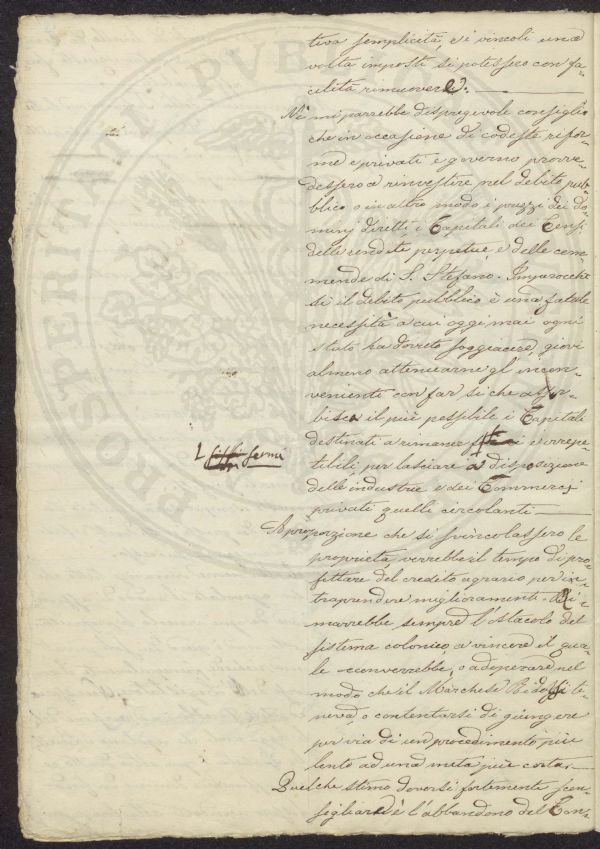 tiva semplicità, e i vincoli una
volta imposti si potessero con fa-
cilità rimuovere.
Nè mi parrebbe dispregevole consiglio
che in occasione di codeste refor-
me e privati e governo provve-
dessero a rinvestire nel debito pub-
blico o in altro modo i prezzi dei do-
minj diretti, i Capitali dei Censi
delle rendite perpetue, e delle com-
mende di S. Stefano. Imperocchè
se il debito pubblico è una fatale
necessità a cui oggi mai ogni
stato ha dovuto soggiacere, giovi
almeno attenuarne gl'incon-
venienti con far sì che assor-
bisca il più possibile i Capitali
destinati a rimaner e irrepe-
tibili per lasciare a disposizione
delle industrie e dei Commerci
privati quelli circolanti.
fermi
A proporzione che si svincolassero le
proprietà, verrebbe il tempo di pro-
fittare del credito agrario per in-
traprendere miglioramenti. Ri-
marrebbe sempre l'ostacolo del
sistema colonico, a vincere il qua-
le converrebbe, o adoperare nel
modo che il Marchese Ridolfi te-
neva, o contentarsi di giungere
per via di un procedimento più
lento ad una meta più certa.
Quel che stimo doversi fortemente scon-
sigliare è l'abbandono del Con-
PROSPERITATI PVBLICAE